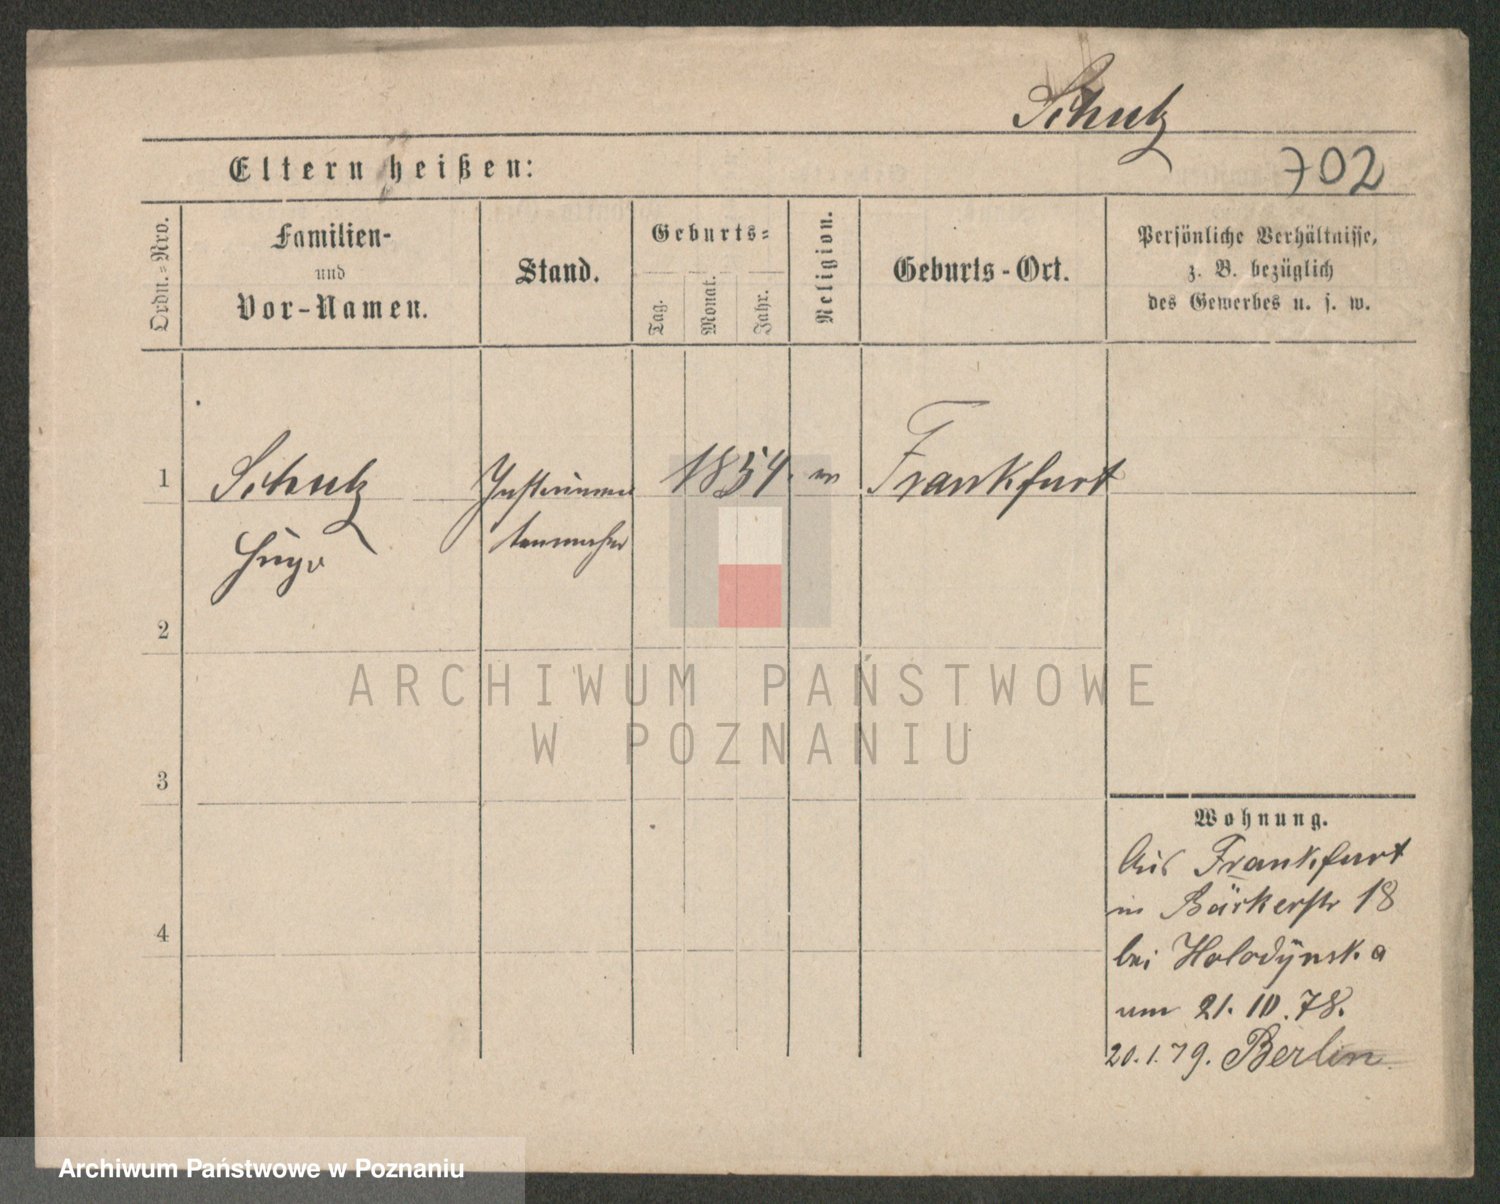 Schulz
Eltern heißen:
702
Ordn.=Nro.
Familien-
und
Vor-Namen.
Stand.
Geburts=
Tag.
Monat.
Jahr.
Religion.
Geburts-Ort.
Persönliche Verhältnisse,
z. B. bezüglich
des Gewerbes u. s. w.
1
Schulz
Hugo
Instrumen
tenmacher
1854.
Frankfurt
2
3
4
ARCHIWUM PAŃSTWOWE
W POZNANIU
Wohnung.
Aus Frankfurt
in Bäckerstr 18
bei Holodynska
am 21.10.78.
20.1.79. Berlin
Archiwum Państwowe w Poznaniu